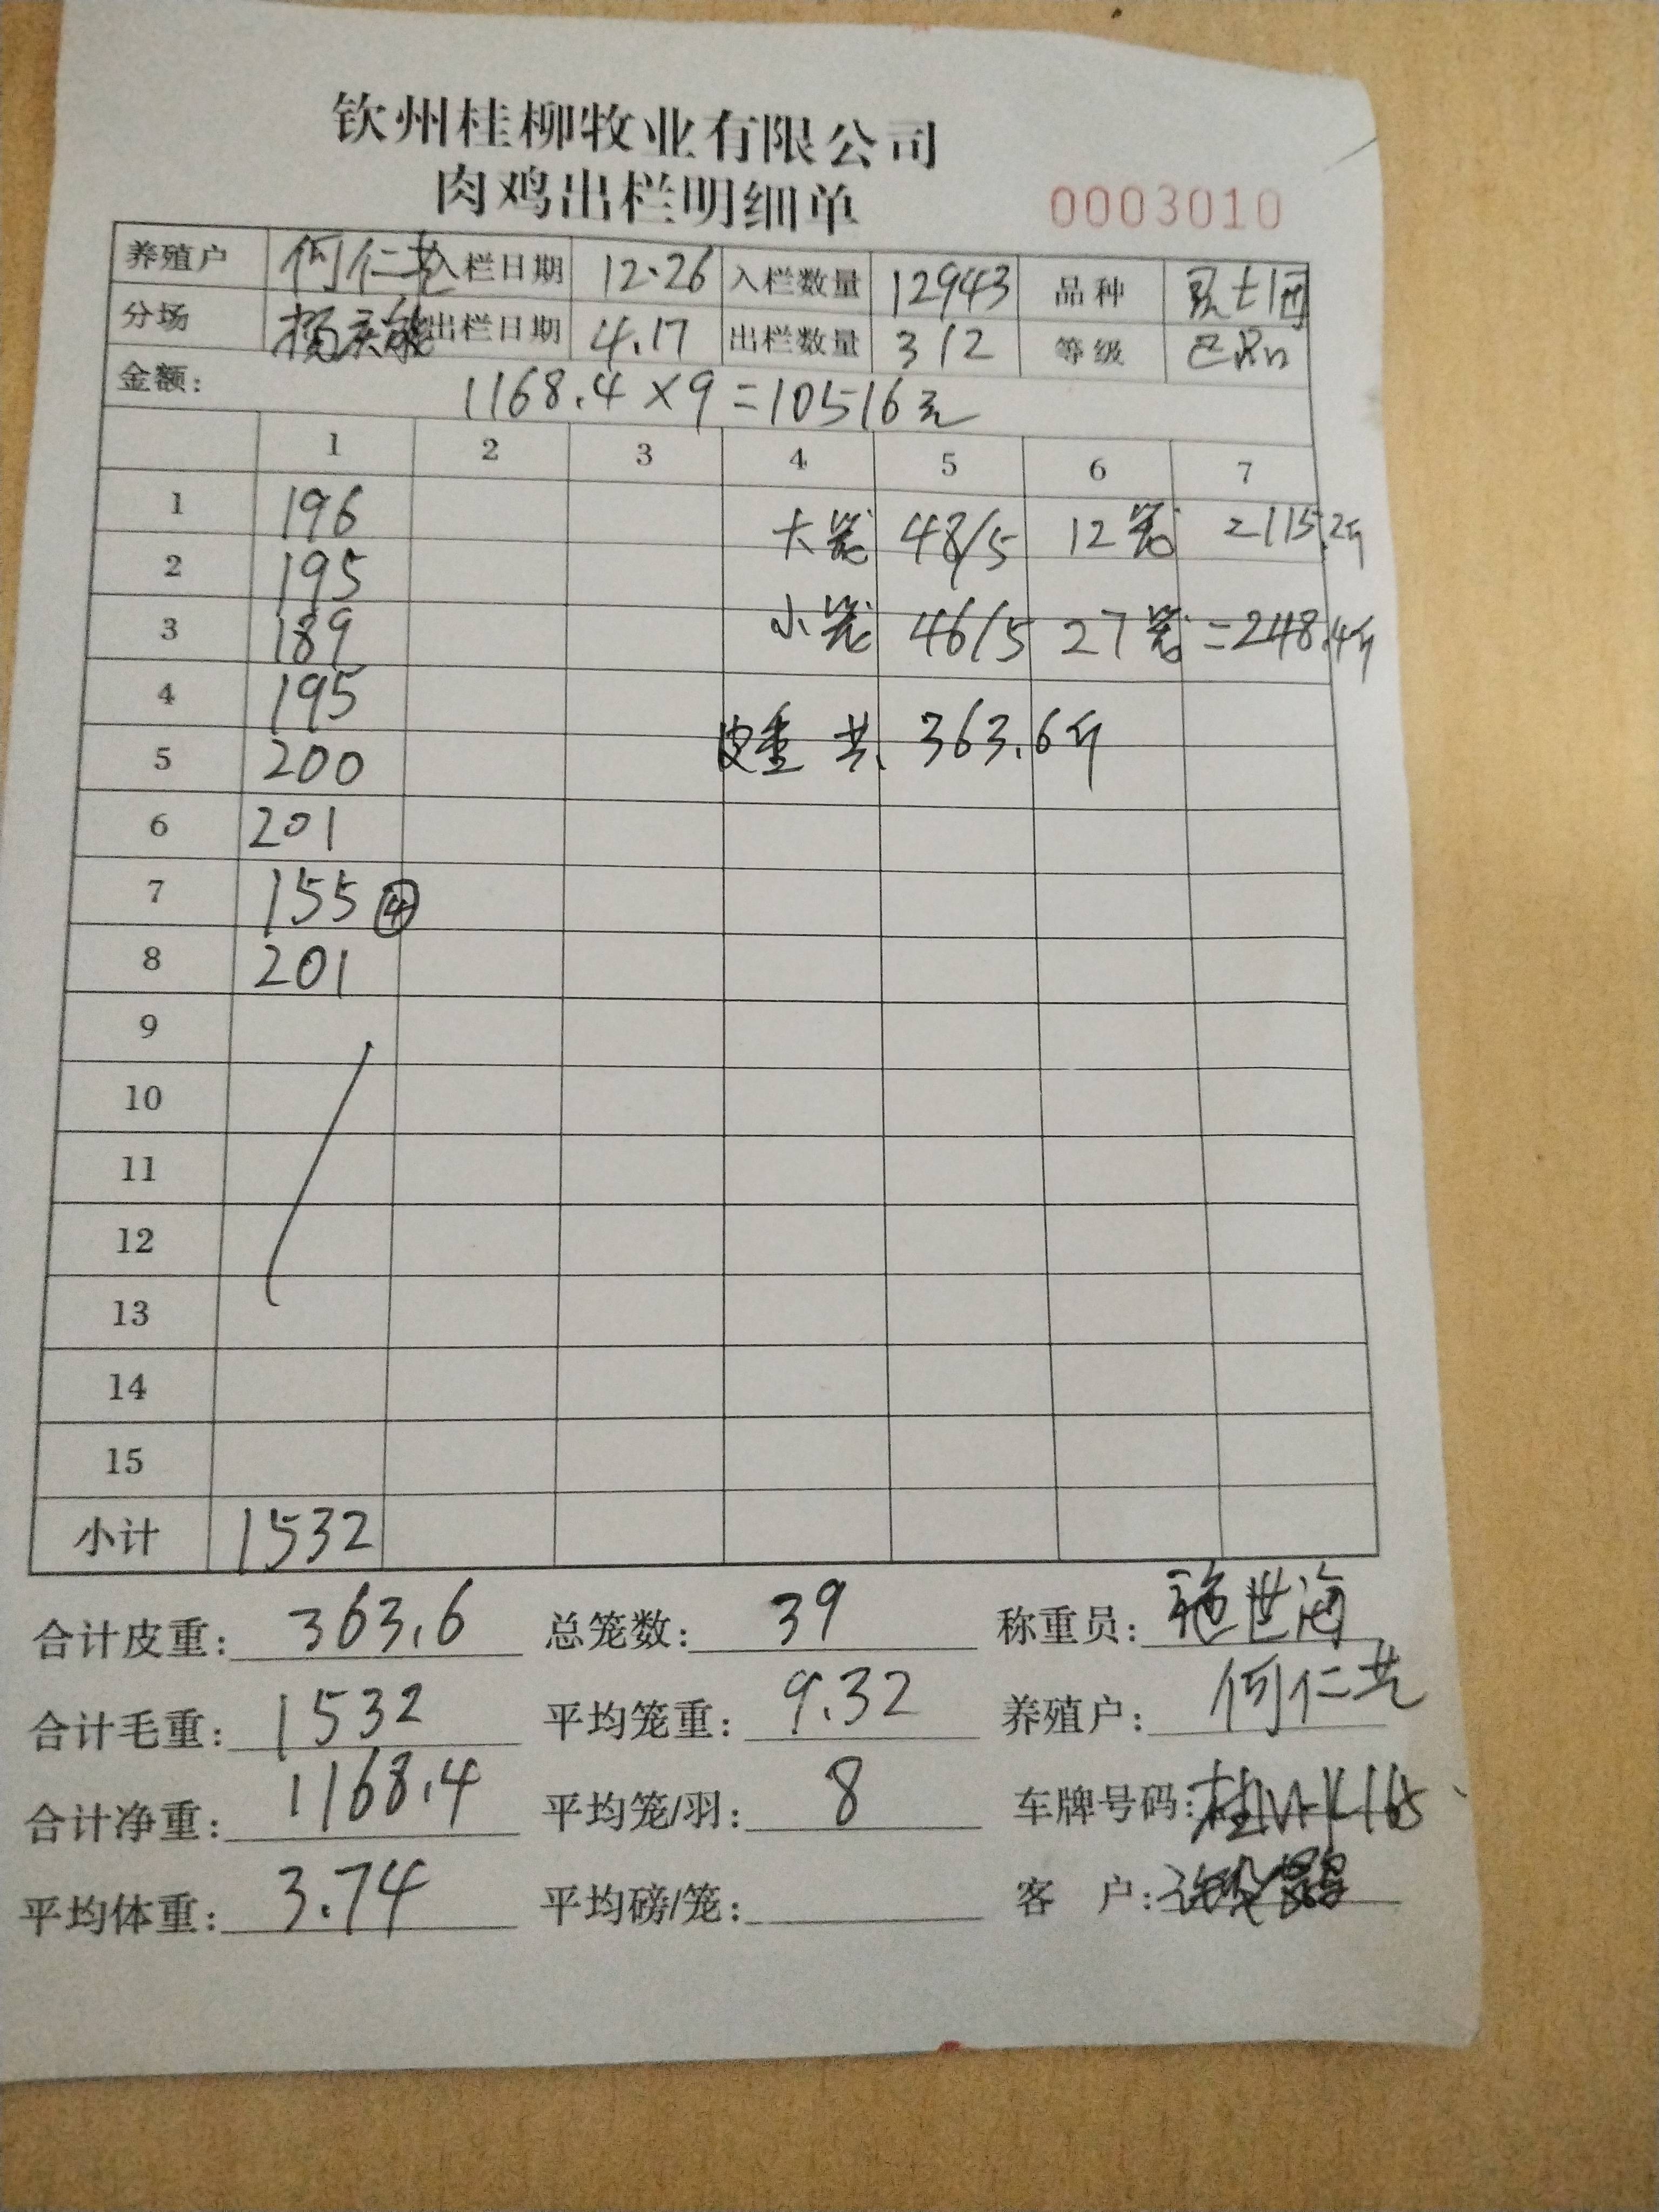 钦州桂柳牧业有限公司
肉鸡出栏明细单 0003010
养殖户 何仁芝 入栏日期 12.26 入栏数量 12943 品种
分场 出栏日期 4.17 出栏数量 312 等级
金额： 1168.4×9=10516元
1 2 3 4 5 6 7
1 196 大笼 48/5 12笼 2115.2斤
2 195
3 189 小笼 46/5 27笼=248.4斤
4 195
5 200 皮重 共 363.6斤
6 201
7 155 ④
8 201
9
10
11
12
13
14
15
小计 1532
合计皮重： 363.6 总笼数： 39 称重员： 施世海
合计毛重： 1532 平均笼重： 9.32 养殖户： 何仁芝
合计净重： 1168.4 平均笼/羽： 8 车牌号码：
平均体重： 3.74 平均磅/笼： 客 户：